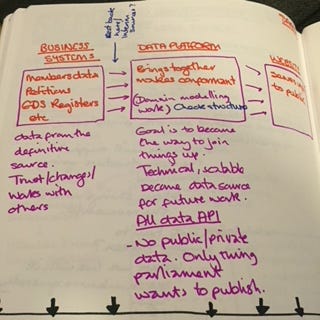 BUSINESS
SYSTEMS
Members data
Petitions
GDS Registers
etc
data from the
definitive
source.
Trust/changes/
works with
others
DATA PLATFORM
Brings together
makes component
(Domain modelling
work) Check structure
Goal is to become
the way to join
things up.
Technical, scalable
Become data source
for future work.
All data API
- No public/private
data. Only thing
parliament
wants to publish.
to public